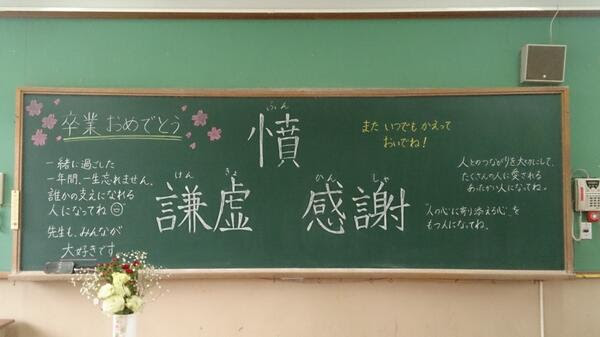 卒業 おめでとう
一緒に過ごした
一年間、一生忘れません。
誰かの支えになれる
人になってね
先生も、みんなが
大好きです
ふん
憤
けん きょ
謙虚
かん しゃ
感謝
また いつでも かえって
おいでね!
人とのつながりを大切にして、
たくさんの人に愛される
あったかい人になってね。
"人の心に寄り添える心"を
もつ人になってね。